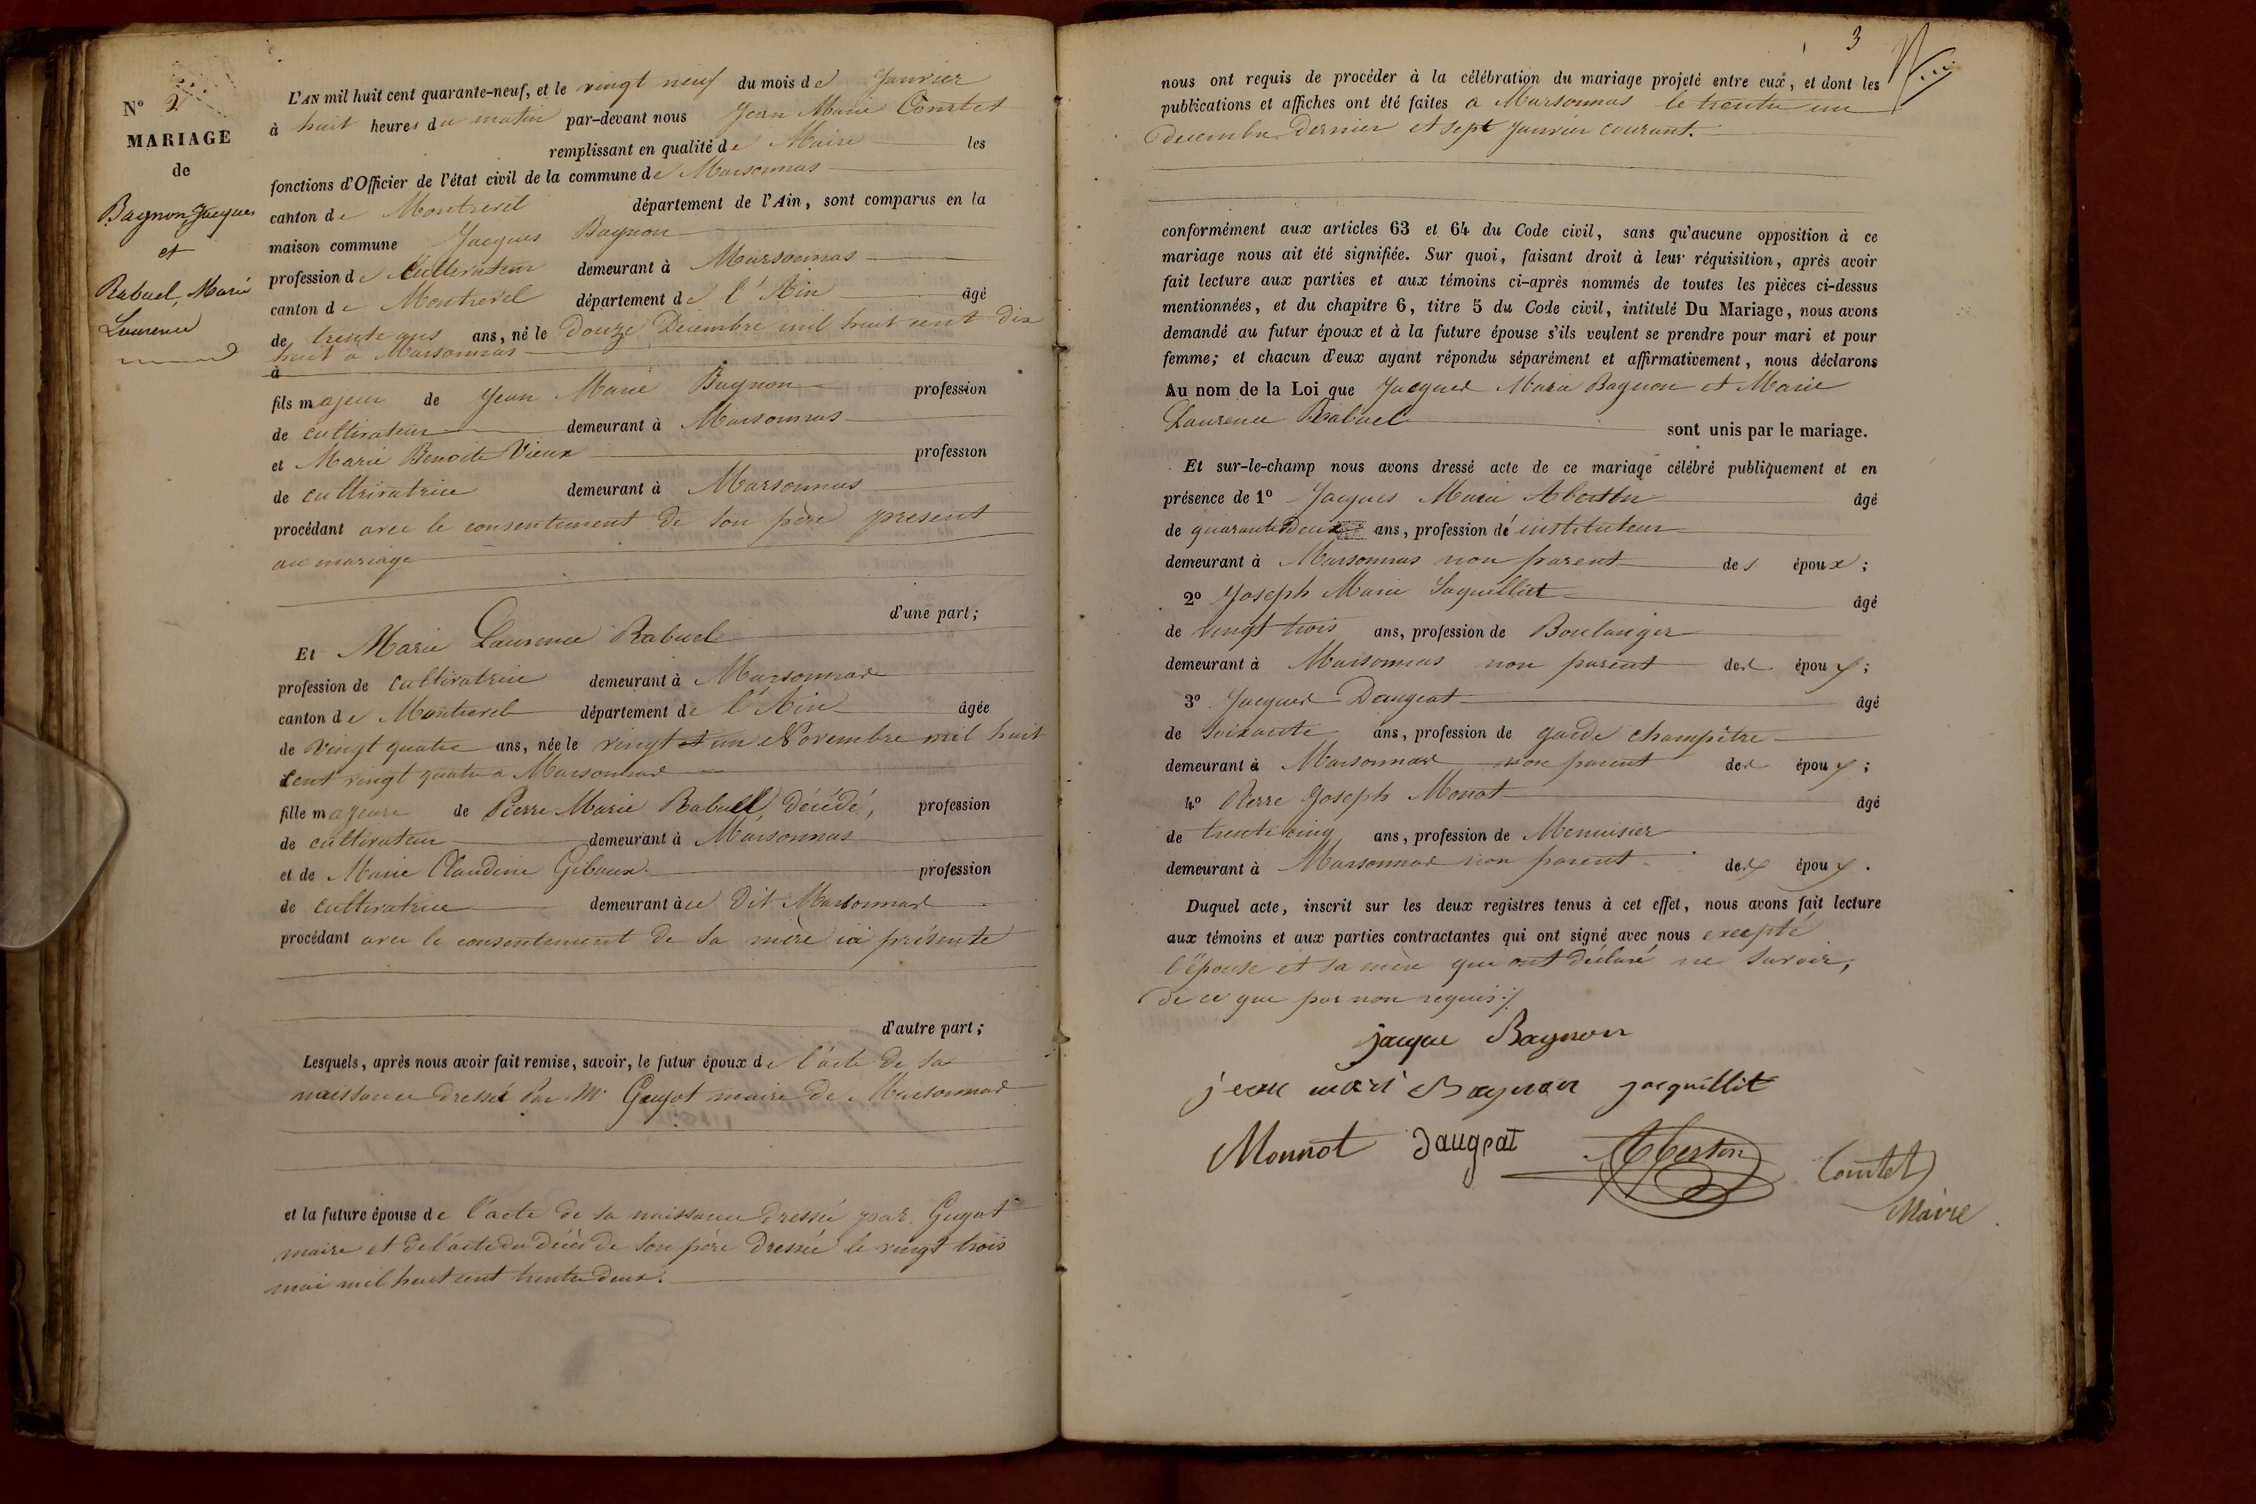 N° 2
MARIAGE
de
Bagnon Jacques
et
Rabuel, Marie
Laurence
L'AN mil huit cent quarante-neuf, et le vingt neuf du mois de Janvier
à huit heures du matin par-devant nous Jean Marie Comtet
remplissant en qualité de Maire les
fonctions d'Officier de l'état civil de la commune de Marsonnas
canton de Montrevel département de l'Ain, sont comparus en la
maison commune Jacques Bagnon
profession de Cultivateur demeurant à Marsonnas
canton de Montrevel département de l'Ain âgé
de trente ans ans, né le Douze Décembre mil huit cent dix
huit a Marsonnas
à
fils majeur de Jean Marie Bagnon profession
de cultivateur demeurant à Marsonnas
et Marie Benoite Vieux profession
de cultivatrice demeurant à Marsonnas
procédant avec le consentement de son père présent
au mariage
d'une part;
Et Marie Laurence Rabuel
profession de cultivatrice demeurant à Marsonnas
canton de Montrevel département de l'Ain âgée
de vingt quatre ans, née le vingt et un Novembre mil huit
cent vingt quatre a Marsonnas
fille majeure de Pierre Marie Rabuel décédé, profession
de cultivateur demeurant à Marsonnas
et de Marie Claudine Giboux profession
de cultivatrice demeurant à ce dit Marsonnas
procédant avec le consentement de sa mère ici présente
d'autre part;
Lesquels, après nous avoir fait remise, savoir, le futur époux de l'acte de sa
naissance dressé Par Mr Guyot maire de Marsonnas
et la future épouse de l'acte de sa naissance dressée par Guyot
maire et de l'acte du décès de son père dressée le vingt trois
mai mil huit cent trente deux.
3
nous ont requis de procéder à la célébration du mariage projeté entre eux, et dont les
publications et affiches ont été faites a Marsonnas le trente un
Decembre Dernier et sept Janvier courant.
conformément aux articles 63 et 64 du Code civil, sans qu'aucune opposition à ce
mariage nous ait été signifiée. Sur quoi, faisant droit à leur réquisition, après avoir
fait lecture aux parties et aux témoins ci-après nommés de toutes les pièces ci-dessus
mentionnées, et du chapitre 6, titre 5 du Code civil, intitulé Du Mariage, nous avons
demandé au futur époux et à la future épouse s'ils veulent se prendre pour mari et pour
femme; et chacun d'eux ayant répondu séparément et affirmativement, nous déclarons
Au nom de la Loi que Jacques Marie Bagnon et Marie
Laurence Rabuel sont unis par le mariage.
Et sur-le-champ nous avons dressé acte de ce mariage célébré publiquement et en
présence de 1° Jacques Marie Alberton âgé
de quarante Deux ans, profession de instituteur
demeurant à Marsonnas non parent des époux;
2° Joseph Marie Jaquillet âgé
de vingt trois ans, profession de Boulanger
demeurant à Marsonnas non parent des époux;
3° Jacques Daugeat âgé
de soixante ans, profession de garde champêtre
demeurant à Marsonnas non parent des époux;
4° Pierre Joseph Monot âgé
de trente cinq ans, profession de Menuisier
demeurant à Marsonnas non parent des époux.
Duquel acte, inscrit sur les deux registres tenus à cet effet, nous avons fait lecture
aux témoins et aux parties contractantes qui ont signé avec nous excepté
l'épouse et sa mère que ont déclaré ne savoir,
de ce que par nous requis./.
jacque Bagnon
jean mari Bagnon jacquillet
Monnot Daugeat Alberton Comtet
Maire